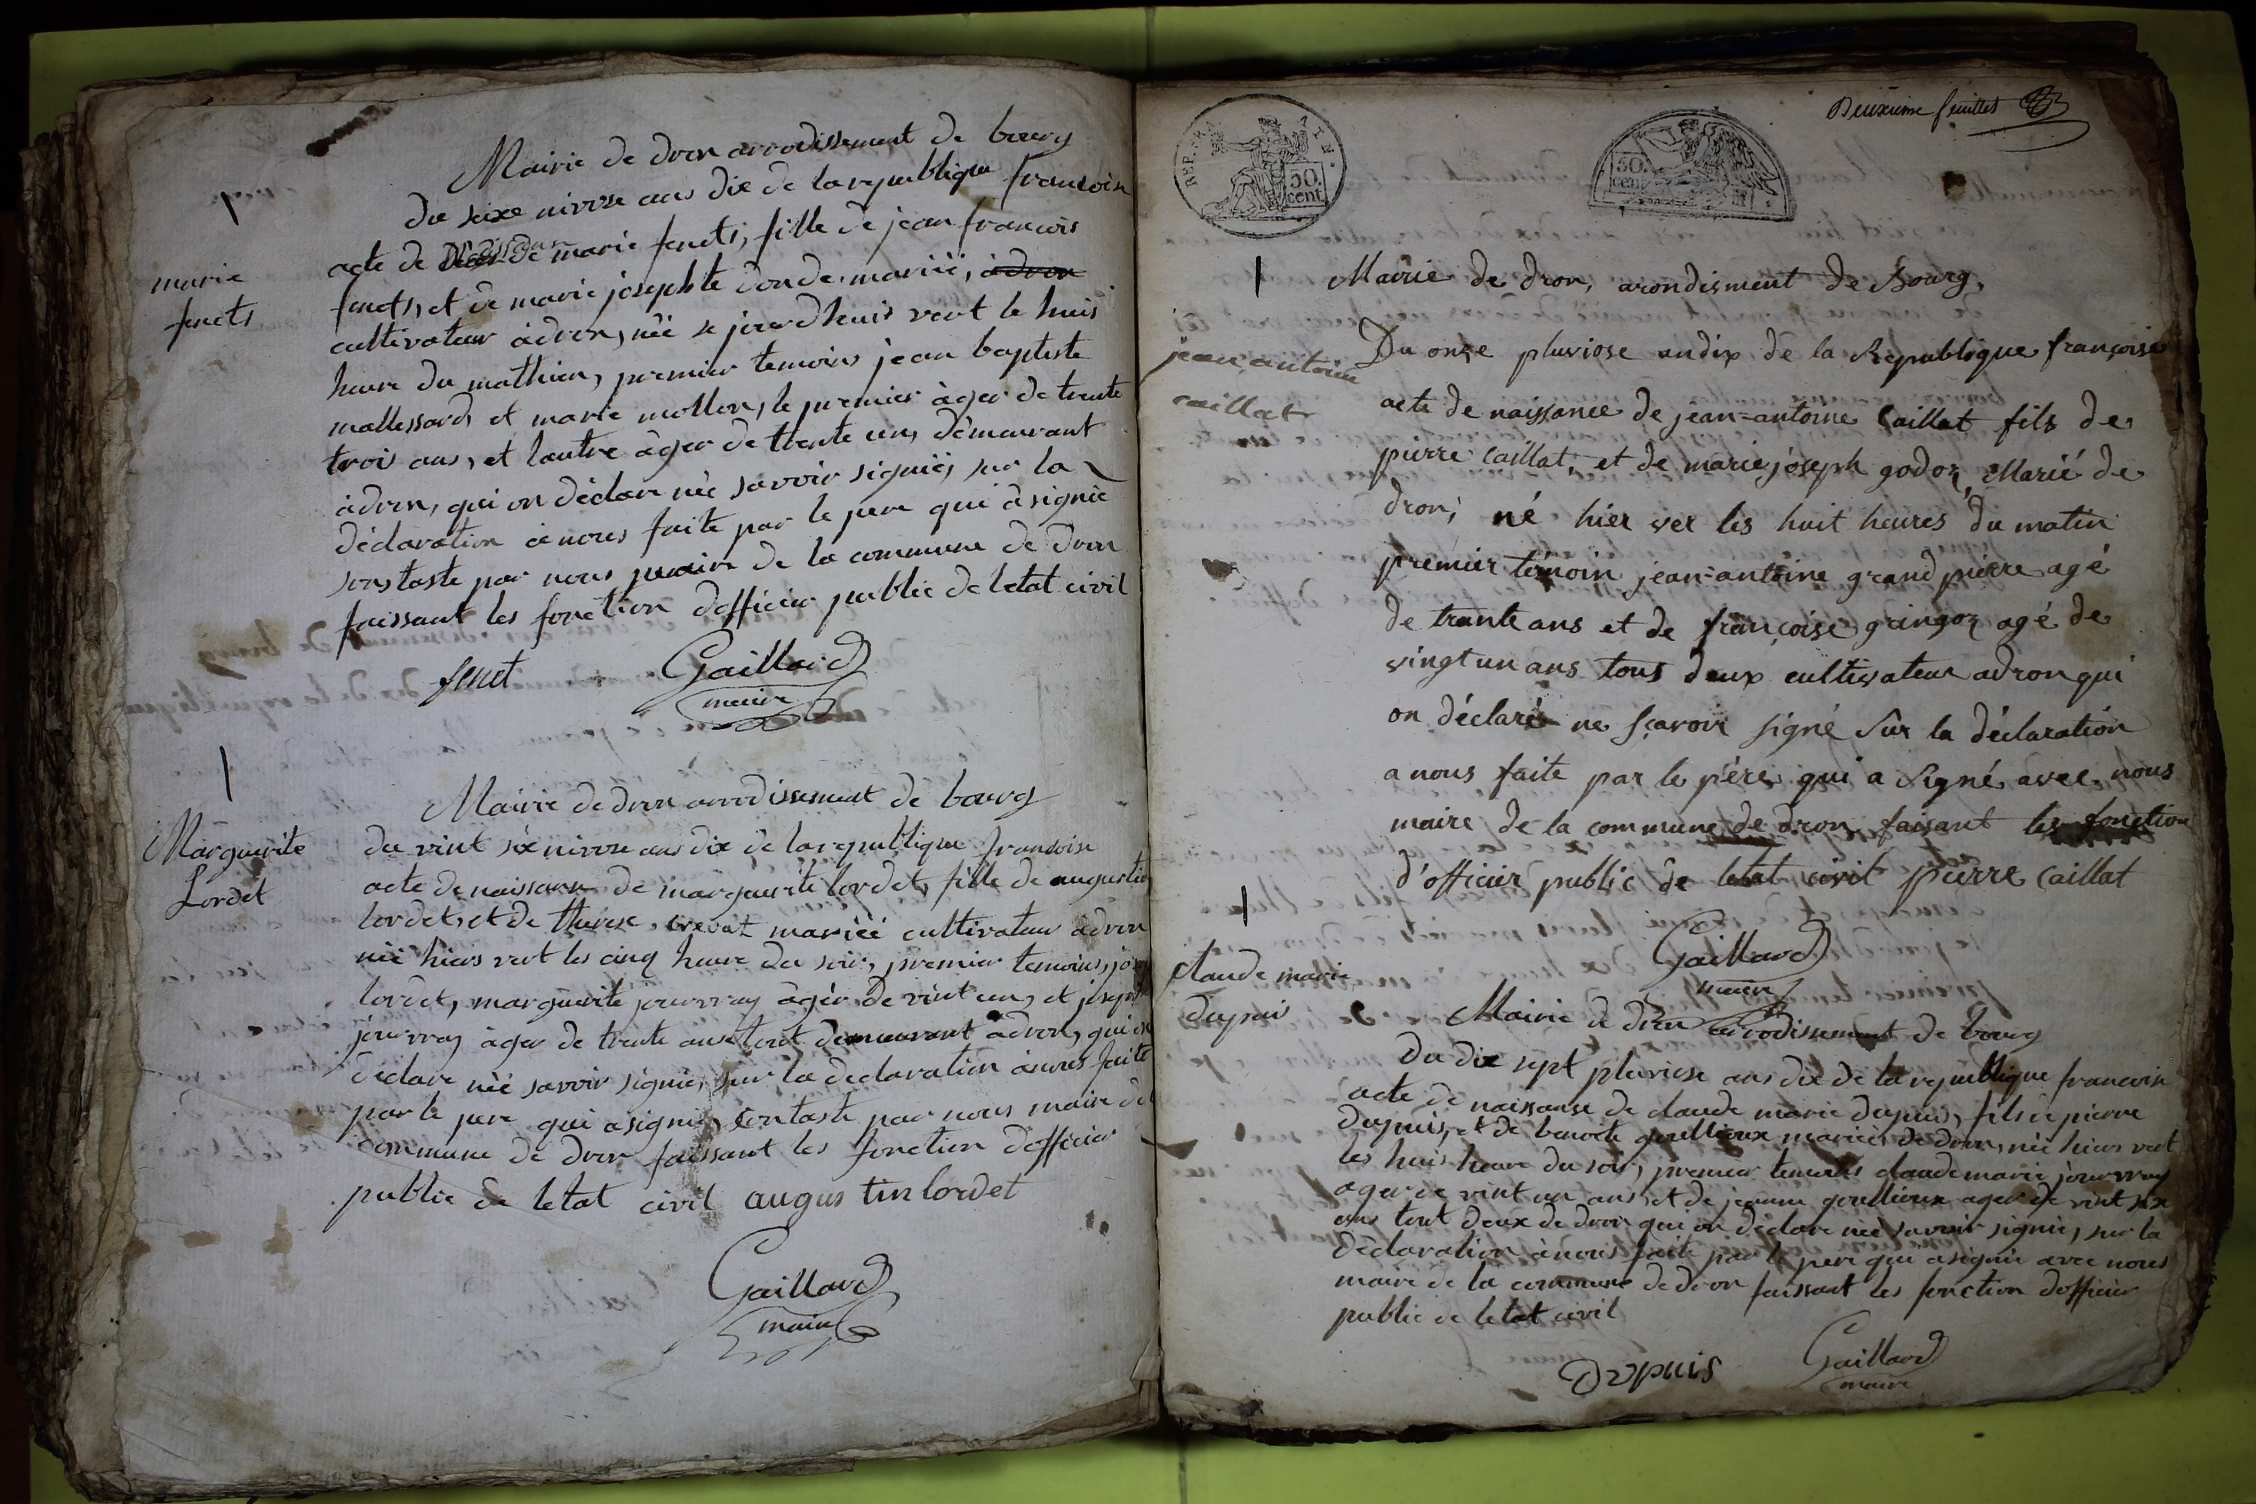 Mairie de dron arrodissement de bourg
du seixe nivose ans dix de la republique francoise
acte de naissan de marie fenets, fille de jean francois
marie
fenets
fenets, et de marie josephte donde mariéé, à dron
cultivateur à dron, néé se jourdhuis vert le huis
heure du mathien, premier temoins jean baptiste
mallessard et marie mollon, le premier àger de trente
trois ans, et lautre àger de trente un, démeurant
à dron, qui on déclare néé savoir signiéé, sur la
déclaration à nous faite par le pere qui à signié
constaste par nous maire de la commune de dron
faissant les fonction dofficier public de letat civil
fenet Gaillard
maire
Mairie de dron arrodissement de bourg
Marguerite
Lordet
du vint six nivose ans dix de la republique francoise
acte de naissance de marguerite lordet, fille de augustin
lordet, et de therese mariéé cultivateur à dron
néé hiers vert les cinq heure du soir, premier temoins,
lordet, marguerite jourvray àgér de vint un, et joseph
jourvray àger de trente ans tout demeurant à dron, qui on
déclare néé savoir signiér, sur la declaration à nous faite
par le pere qui a signié, contaste par nous maire de
commune de dron faissant les fonction dofficier
public de letat civil augustin lordet
Gaillard
maire
Deuxieme feuillet
REP. FRA 50. cent
50. cent
Mairie de dron, arondisment de Bourg,
jean antoine
caillat
Du onze pluviose an dix de la Republique françoise
acte de naissance de jean=antoine Caillat fils de
pierre Caillat, et de marie joseph godoz, Marié de
dron, né hier ver les huit heures du matin
premier témoin jean=antoine grand pierre agé
de trante ans et de françoise gringoz agé de
vingt un ans tous deux cultivateur a dron qui
on déclaré ne sçavoir signé sur la déclaration
a nous faite par le pére qui a signé avec nous
maire de la commune de dron faisant les fonction
d'officier public de letat civil pierre Caillat
Gaillard
maire
claude marie
dupuis
Mairie de dron arrodissement de bourg
du dix sept pluviose ans dix de la republique francoise
acte de naissanse de claude marie dupuis, fils de pierre
dupuis, et de benoite goullioux mariéé de dron, néé hiers vert
les huis heure du soir, premier temoins claude marie jourvray
ager de vint un ans, et de jeanne goullioux ager de vint six
ans tout deux de dron qui on déclare néé savoir signié, sur la
déclaration à nous faite par le pere qui a signié avec nous
maire de la commune de dron faissant les fonction dofficier
public de letat civil
Dupuis Gaillard
maire